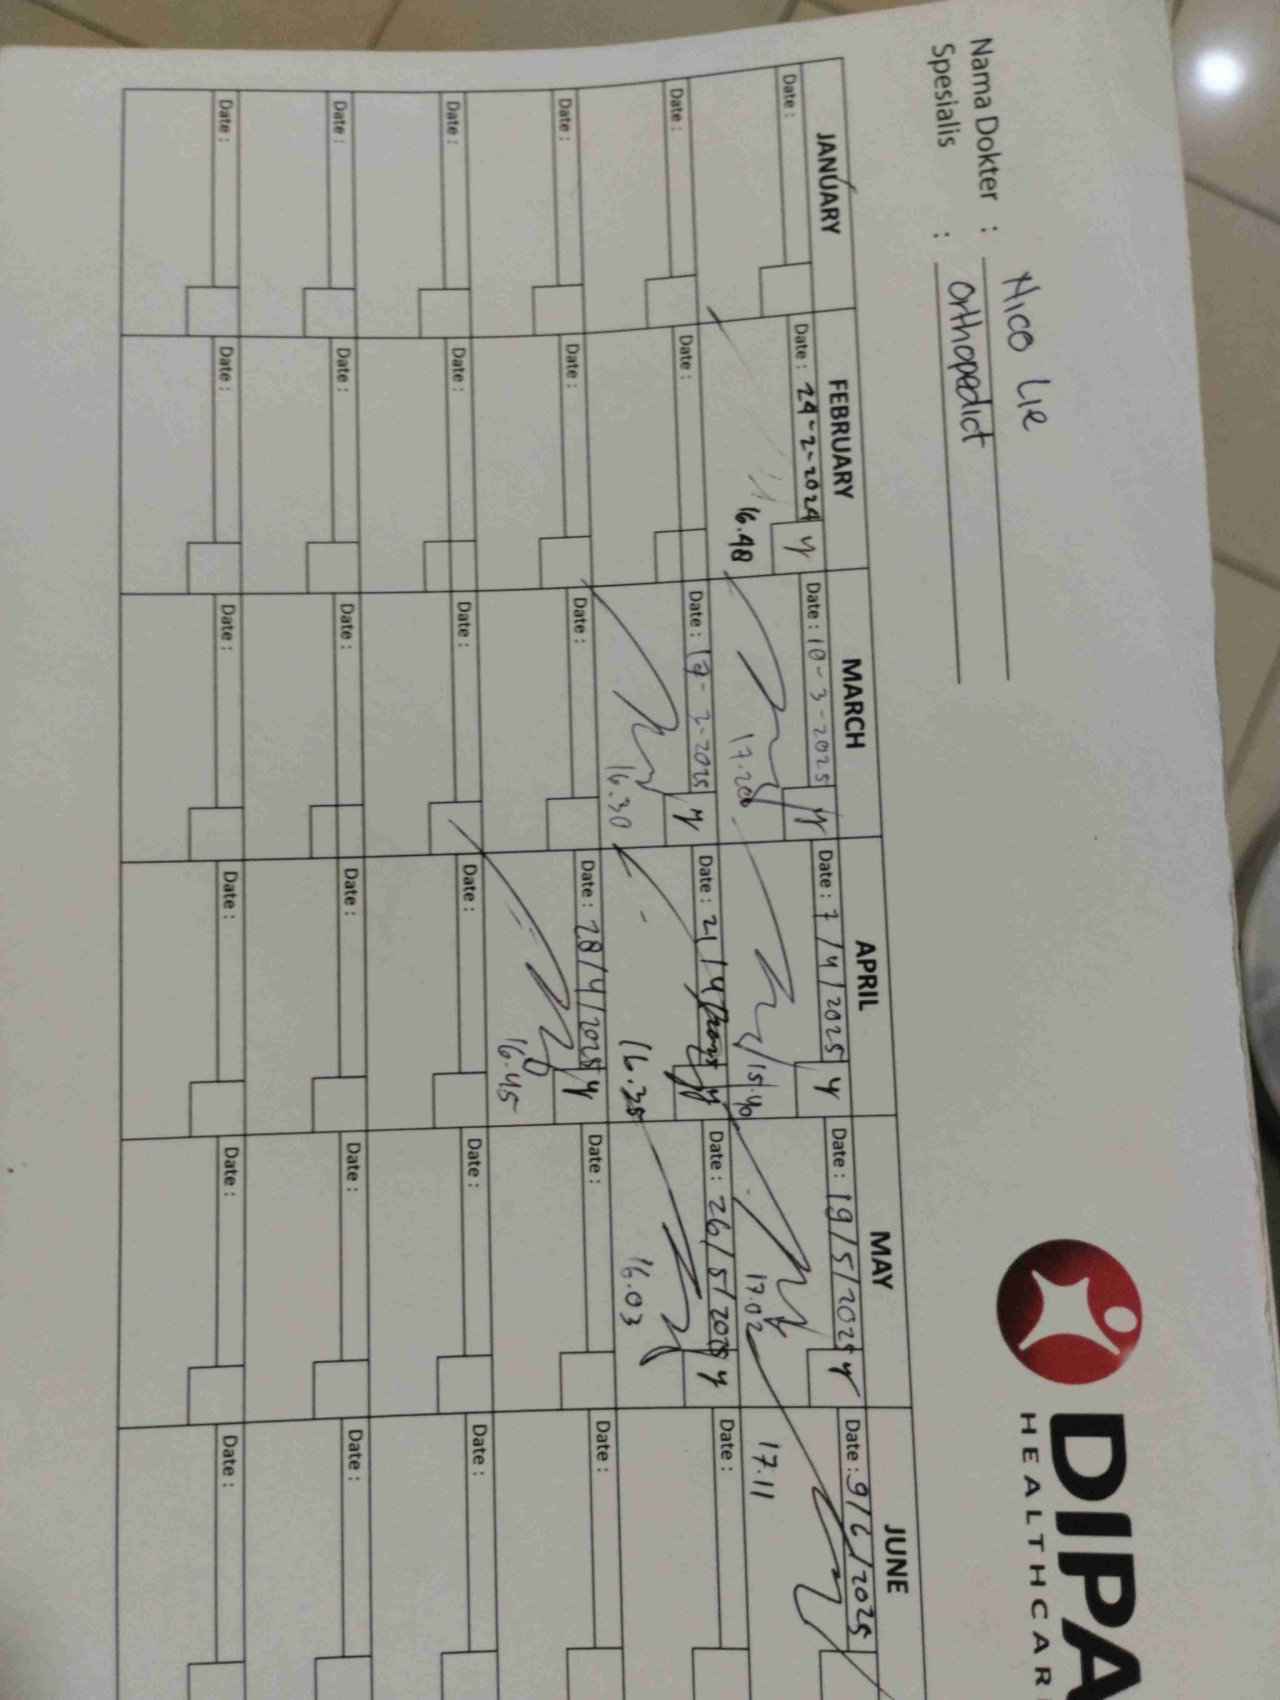 DIPA
HEALTHCAR
Nama Dokter : Nico Lie
Spesialis : Orthopedict
JANUARY FEBRUARY MARCH APRIL MAY JUNE
Date : Date : 24-2-2024 y Date : 10-3-2025 y Date : 7/4/2025 y Date : 19/5/2025 y Date : 9/6/2025
16.48 17.20 15.40 17.02 17.11
Date : Date : Date : 17-3-2025 y Date : 21/4/2025 y Date : 26/5/2025 y Date :
16.30 16.35 16.03
Date : Date : Date : Date : 28/4/2025 y Date : Date :
16.45
Date : Date : Date : Date : Date : Date :
Date : Date : Date : Date : Date : Date :
Date : Date : Date : Date : Date : Date :